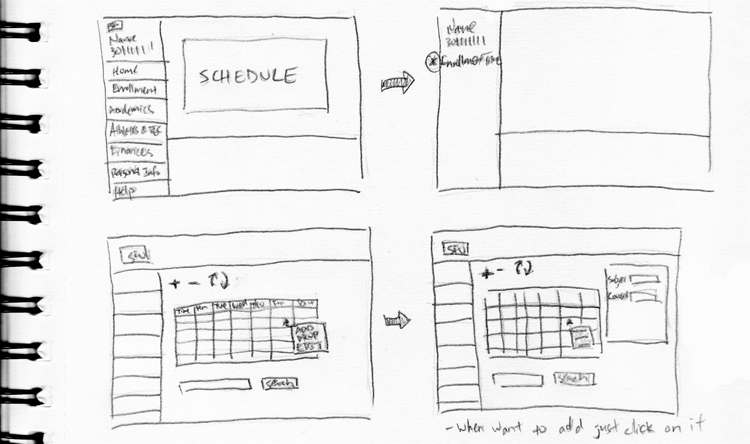 Name
30111111
Home
Enrollment
Academics
Finances
Personal Info
Help
SCHEDULE
Name
30111111
* Enrollment Time
SFU
+ -
Time Mon Tue Wed Thu Fri
ADD
DROP
EDIT
search
SFU
+ -
Subject
Course
search
- when want to add just click on it